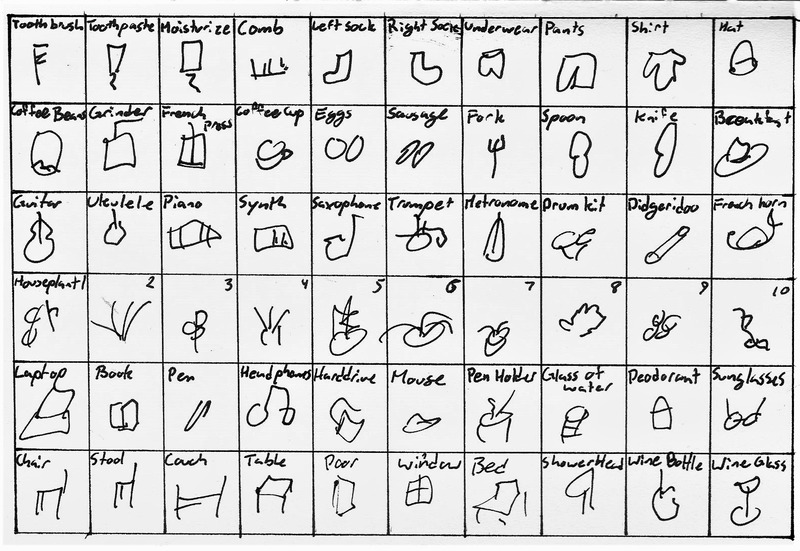 Toothbrush Toothpaste Moisturize Comb Left Sock Right Sock Underwear Pants Shirt Hat
Coffee Beans Grinder French Press Coffee Cup Eggs Sausage Fork Spoon Knife Breakfast
Guitar Ukulele Piano Synth Saxophone Trumpet Metronome Drum kit Didgeridoo French horn
Houseplant 1 2 3 4 5 6 7 8 9 10
Laptop Book Pen Headphones Harddrive Mouse Pen Holder Glass of water Deodorant Sunglasses
Chair Stool Couch Table Door Window Bed Showerhead Wine Bottle Wine Glass